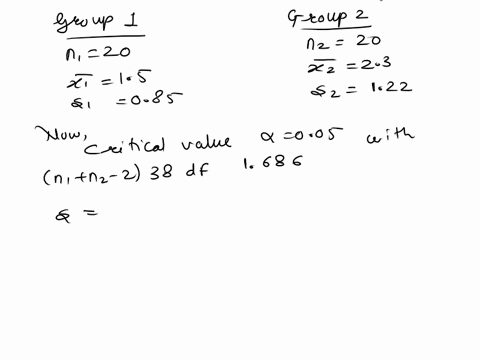 Group 1
n₁ = 20
x̄₁ = 1.5
s₁ = 0.85
Group 2
n₂ = 20
x̄₂ = 2.3
s₂ = 1.22
Now,
critical value α = 0.05 with
(n₁+n₂-2) 38 df 1.686
s =